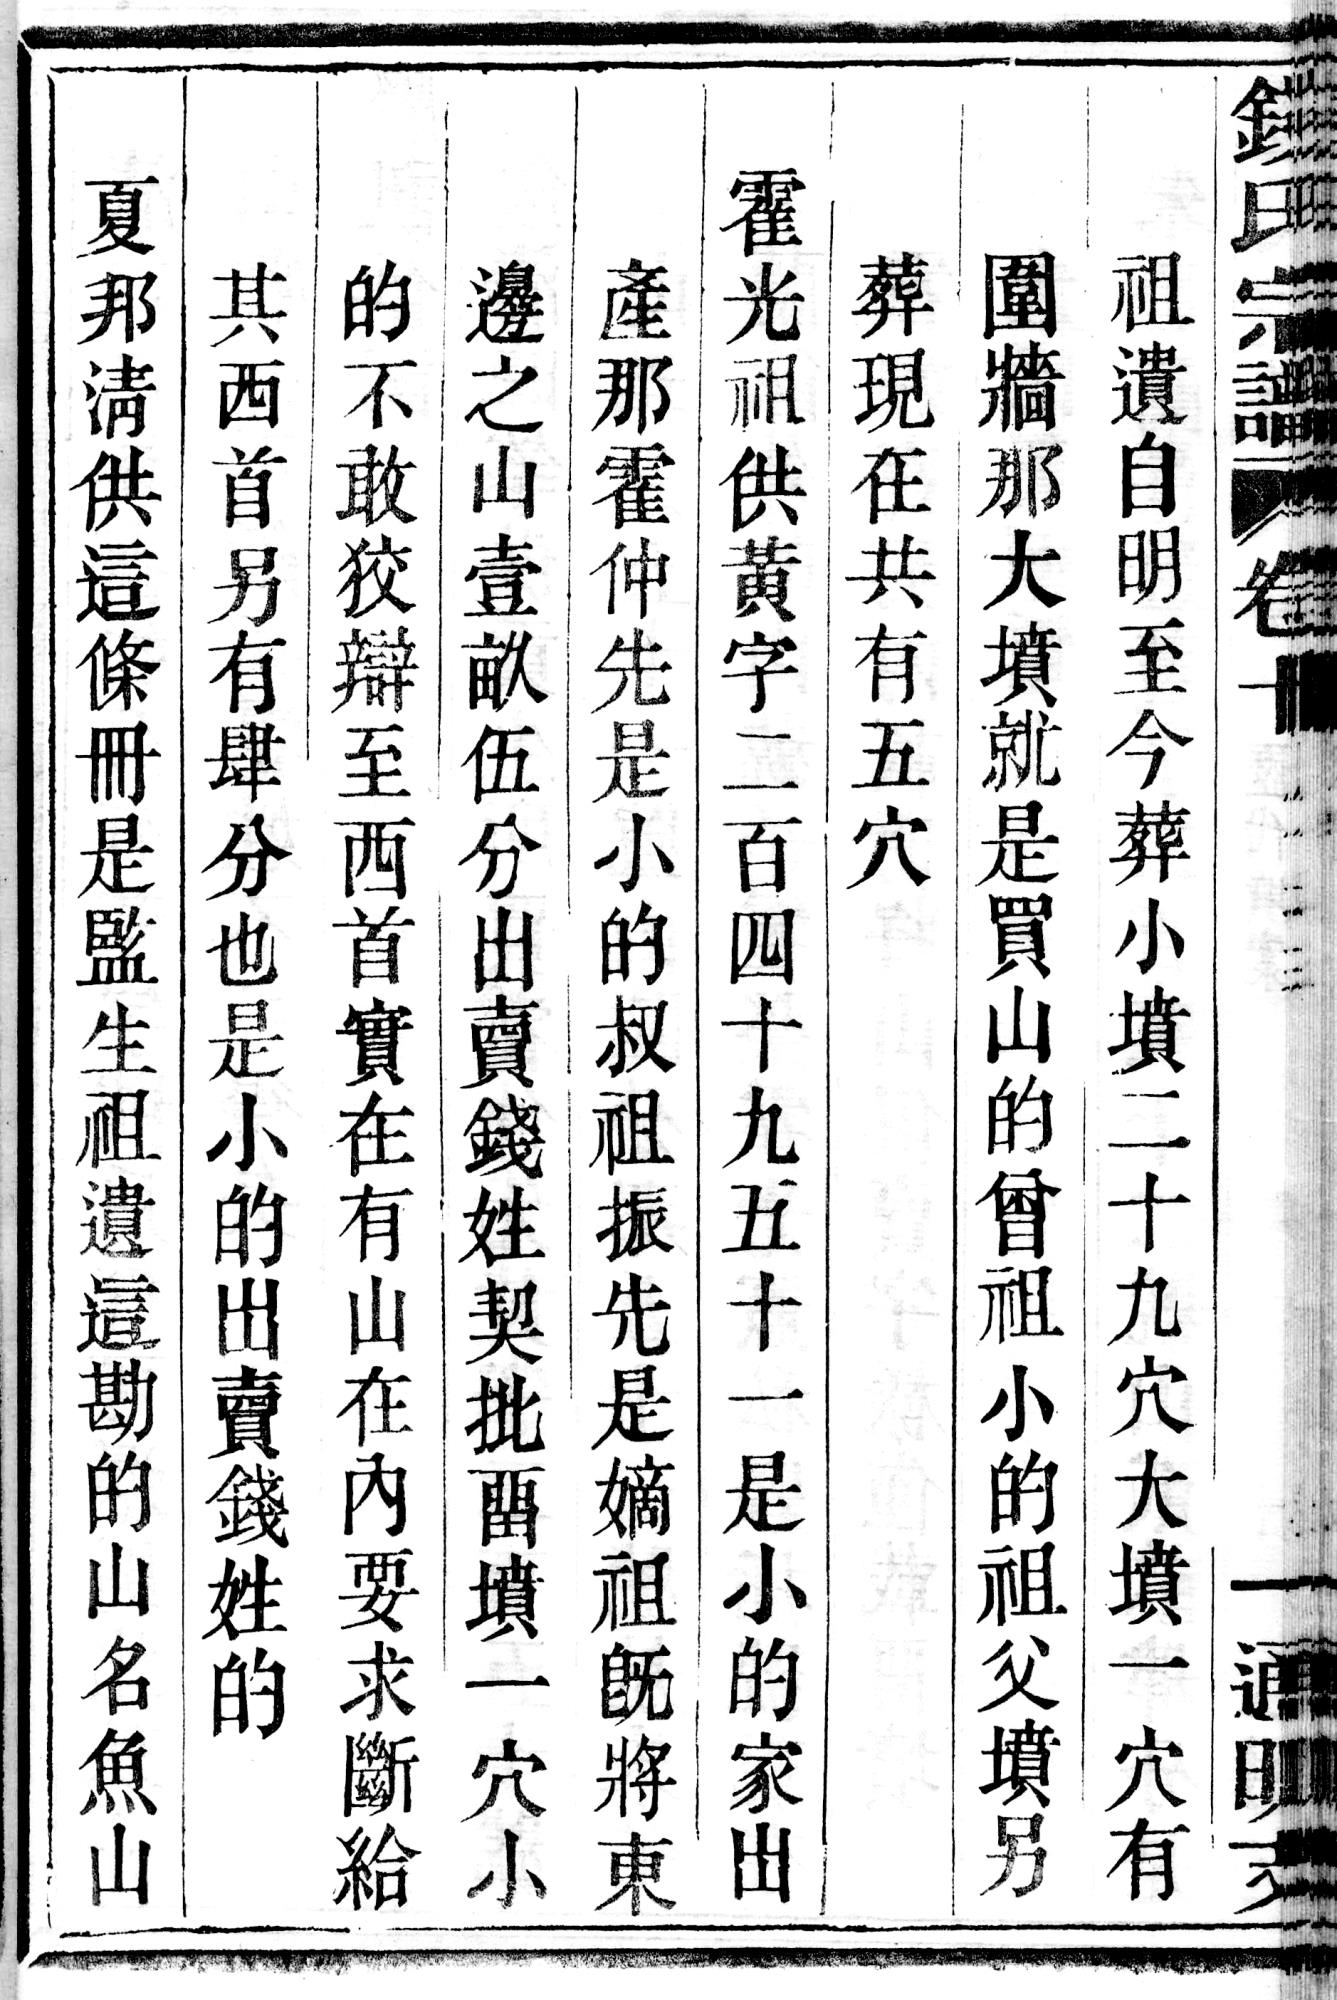 錢氏宗譜 卷十 一 通明支
祖遺自明至今葬小墳二十九穴大墳一穴有
圍牆那大墳就是買山的曾祖小的祖父墳另
葬現在共有五穴
霍光祖供黃字二百四十九五十一是小的家出
產那霍仲先是小的叔祖振先是嫡祖旣將東
邊之山壹畝伍分出賣錢姓契批畱墳一穴小
的不敢狡辯至西首實在有山在內要求斷給
其西首另有肆分也是小的出賣錢姓的
夏邦淸供這條冊是監生祖遺這勘的山名魚山